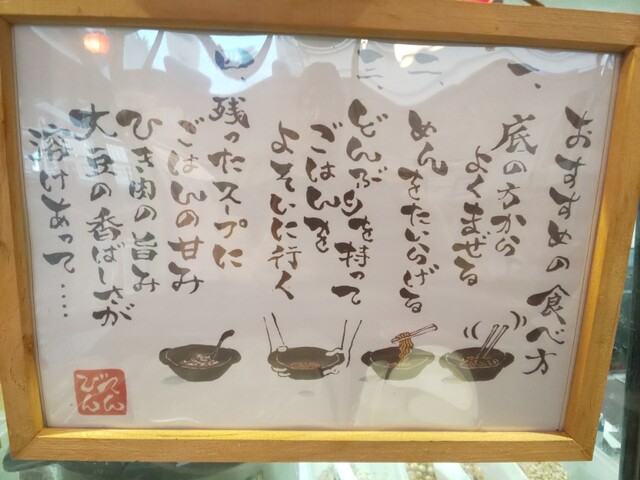 おすすめの食べ方
一、底の方から
よくまぜる
二、めんをたいらげる
三、どんぶりを持って
ごはんを
よそいに行く
四、残ったスープに
ごはんの甘み
ひき肉の旨み
大豆の香ばしさが
溶けあって‥‥
てん
びん